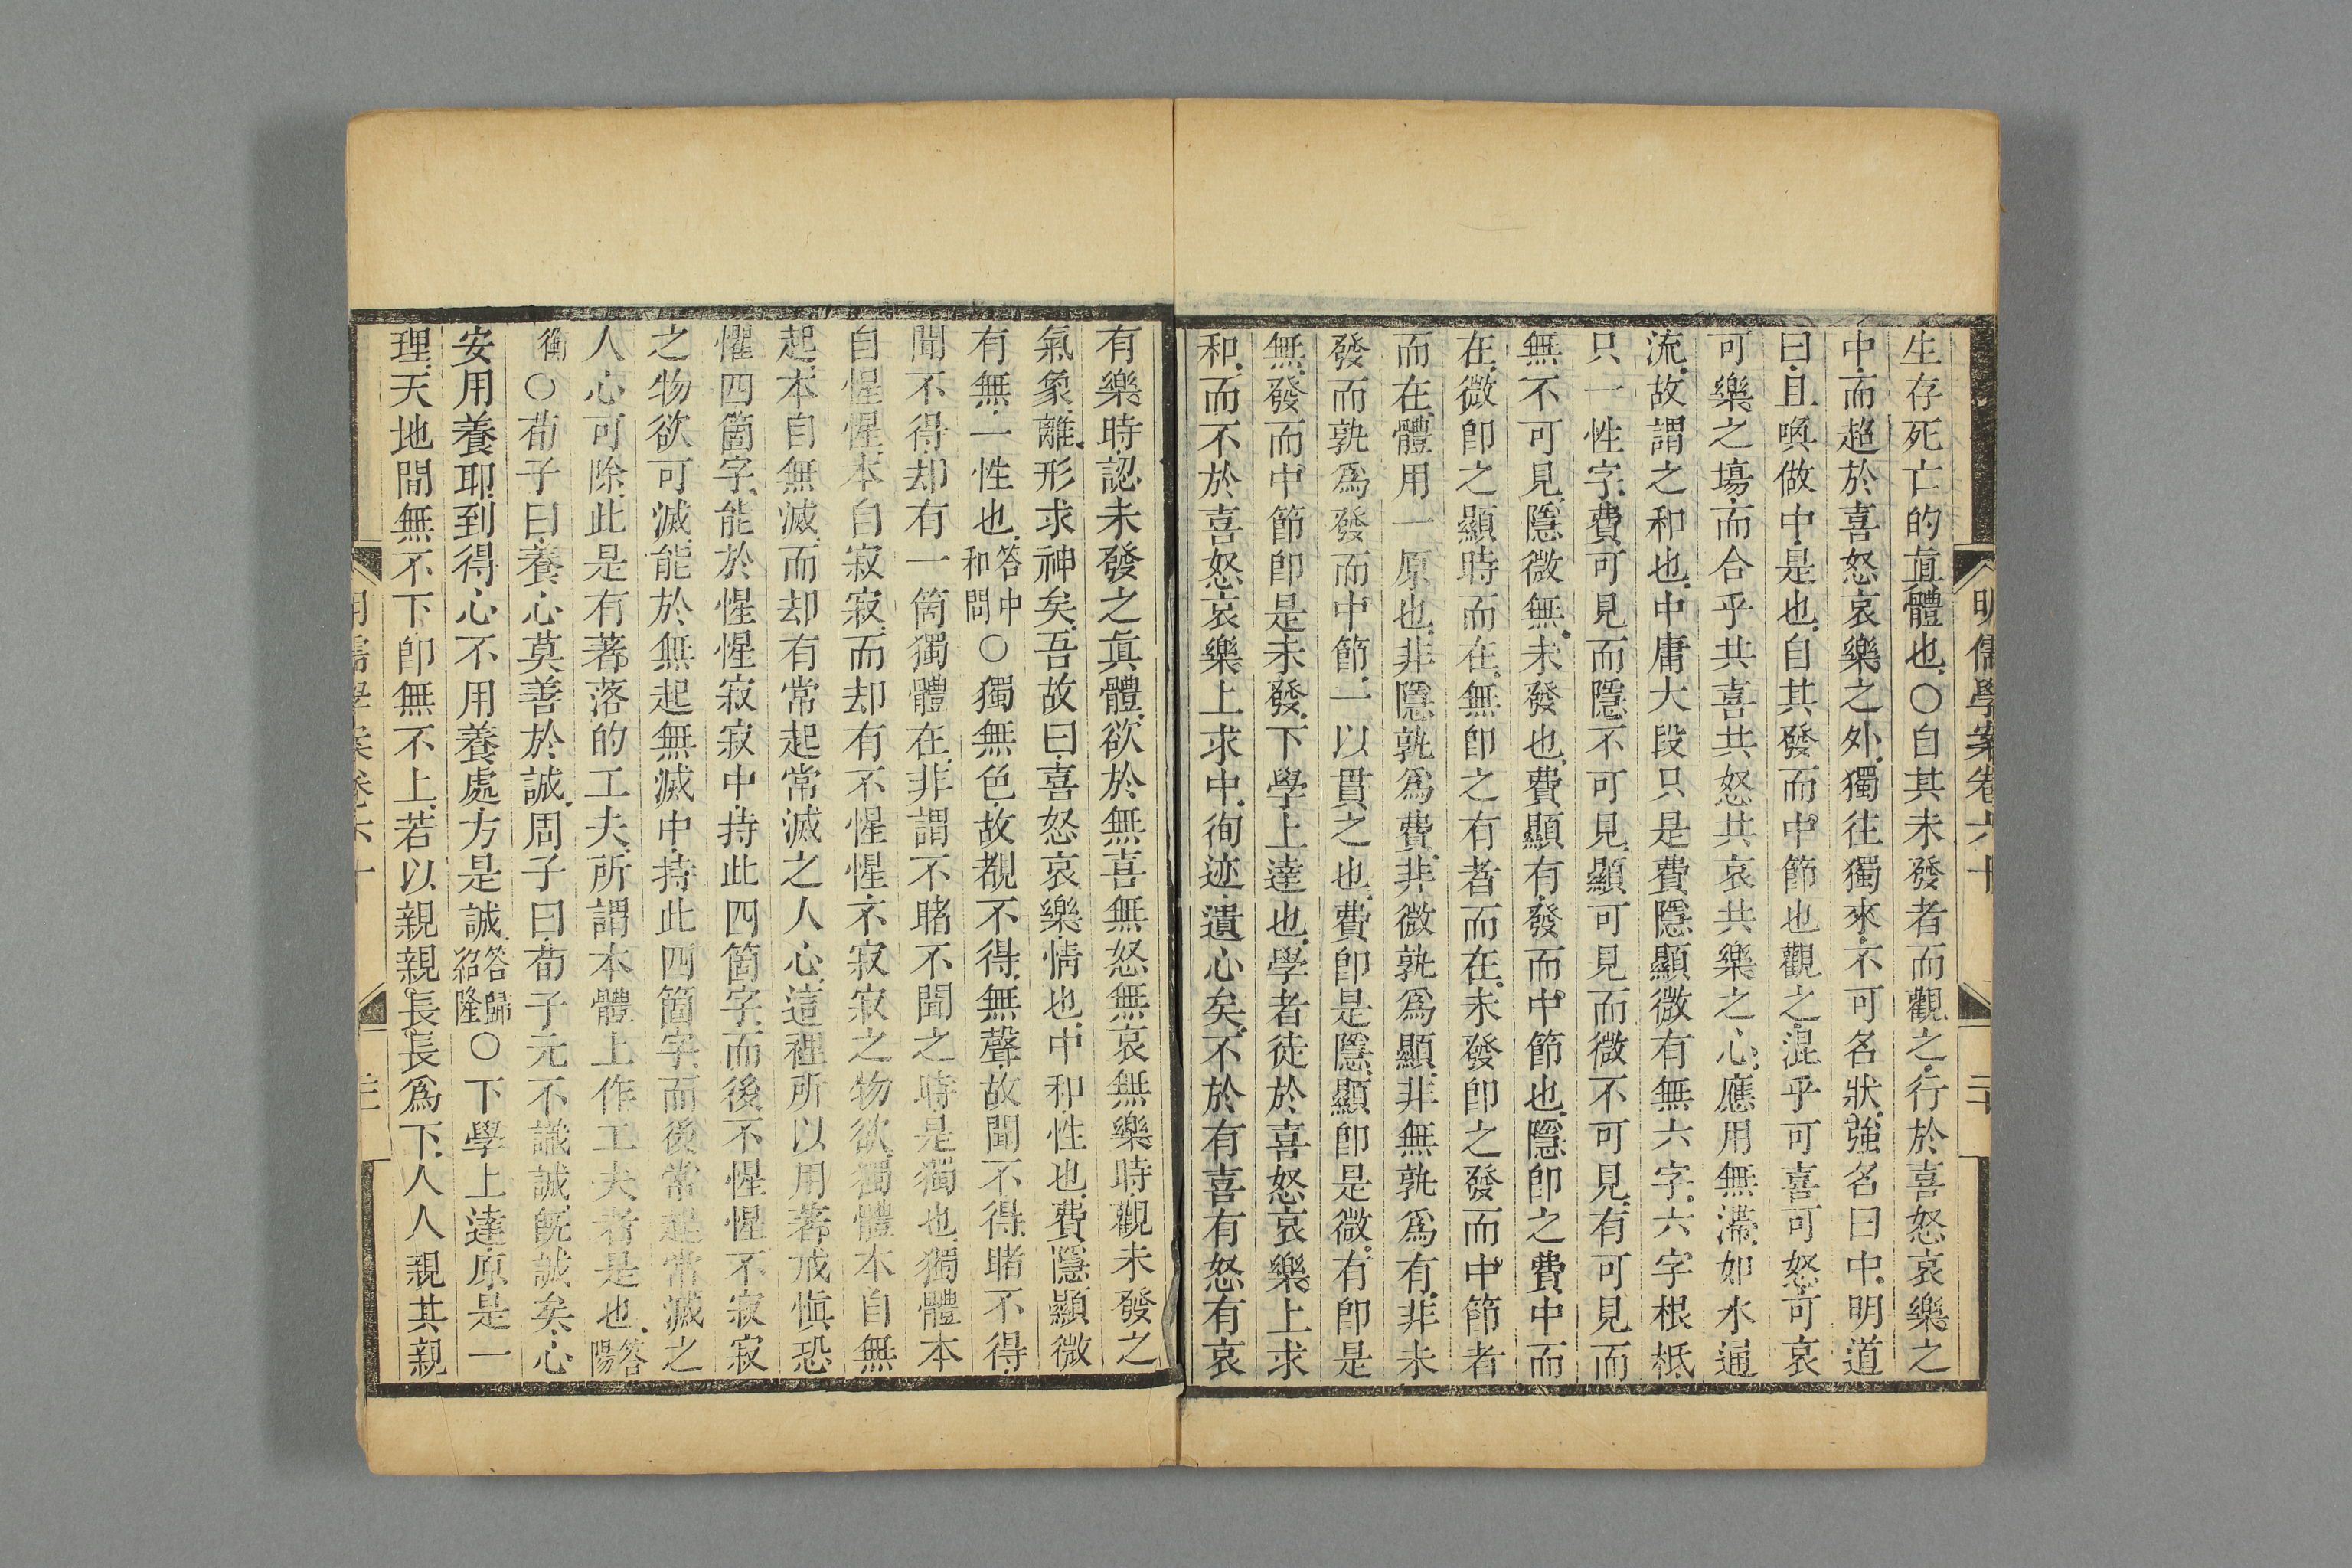 明儒學案卷六十
二十
生存死亡的眞體也○自其未發者而觀之行於喜怒哀樂之
中而超於喜怒哀樂之外獨往獨來不可名狀強名曰中明道
曰且喚做中是也自其發而中節也觀之混乎可喜可怒可哀
可樂之塲而合乎共喜共怒共哀共樂之心應用無滯如水通
流故謂之和也中庸大段只是費隱顯微有無六字六字根柢
只一性字費可見而隱不可見顯可見而微不可見有可見而
無不可見隱微無未發也費顯有發而中節也隱卽之費中而
在微卽之顯時而在無卽之有者而在未發卽之發而中節者
而在體用一原也非隱孰爲費非微孰爲顯非無孰爲有非未
發而孰爲發而中節一以貫之也費卽是隱顯卽是微有卽是
無發而中節卽是未發下學上達也學者徒於喜怒哀樂上求
和而不於喜怒哀樂上求中徇迹遺心矣不於有喜有怒有哀
有樂時認未發之眞體欲於無喜無怒無哀無樂時觀未發之
氣象離形求神矣吾故曰喜怒哀樂情也中和性也費隱顯微
有無一性也答中和問○獨無色故覩不得無聲故聞不得睹不得
聞不得却有一箇獨體在非謂不睹不聞之時是獨也獨體本
自惺惺本自寂寂而却有不惺惺不寂寂之物欲獨體本自無
起本自無滅而却有常起常滅之人心這裡所以用著戒愼恐
懼四箇字能於惺惺寂寂中持此四箇字而後不惺惺不寂寂
之物欲可滅能於無起無滅中持此四箇字而後常起常滅之
人心可除此是有著落的工夫所謂本體上作工夫者是也答陽
衡○荀子曰養心莫善於誠周子曰荀子元不識誠旣誠矣心
安用養耶到得心不用養處方是誠答歸紹隆○下學上達原是一
理天地間無不下卽無不上若以親親長長爲下人人親其親
明儒學案卷六十